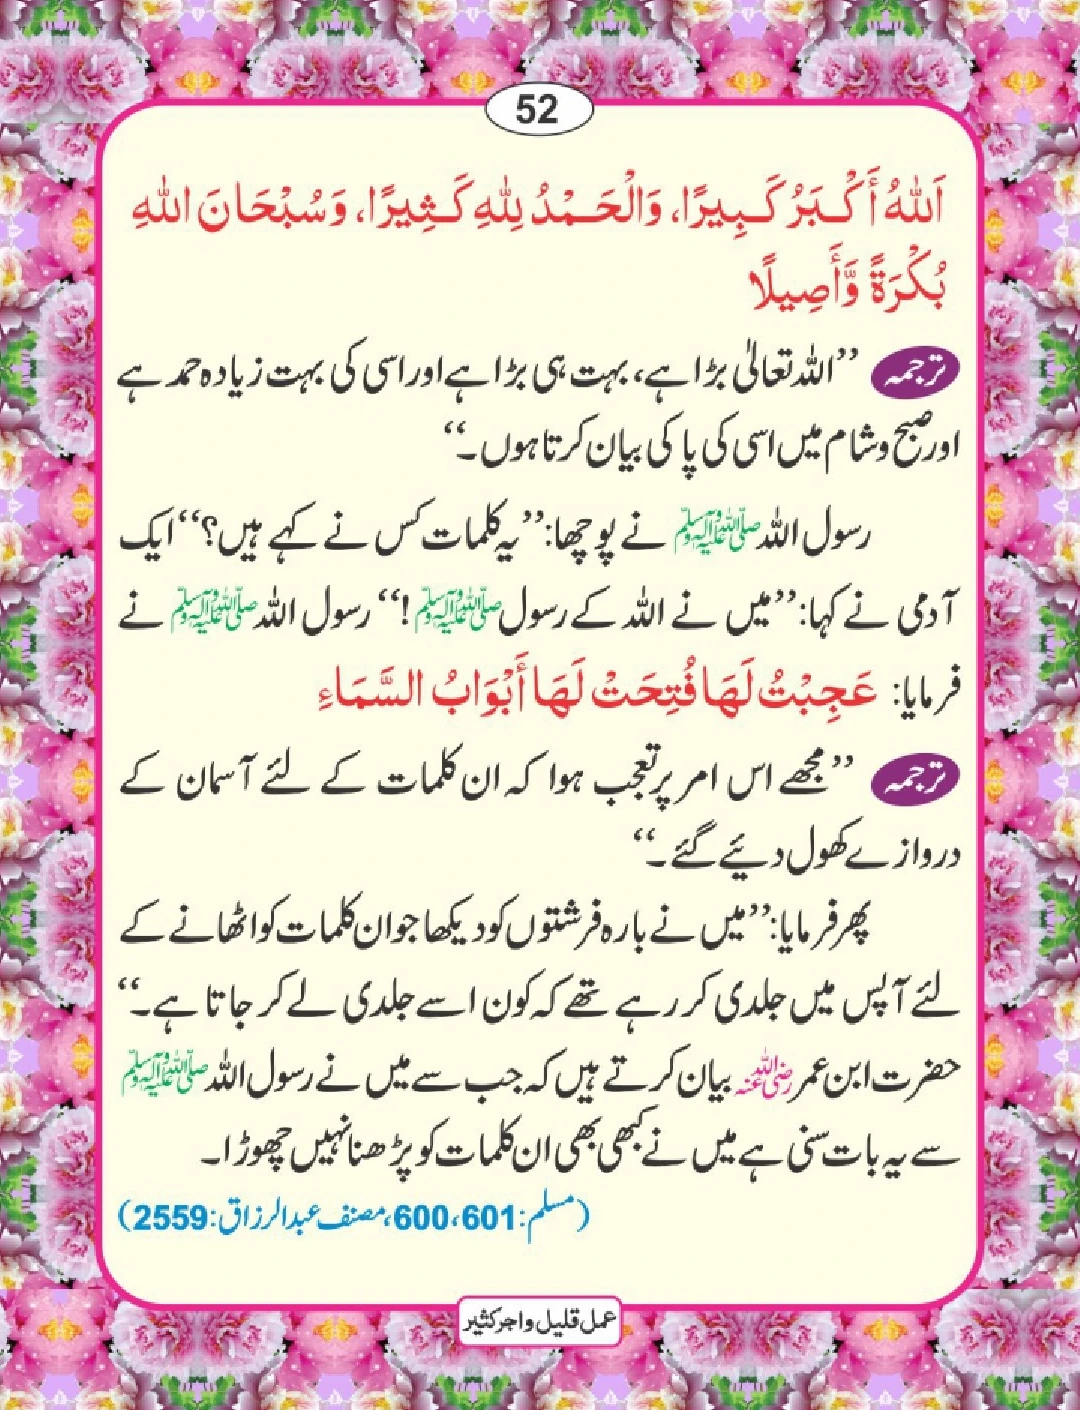 52
اَللّٰهُ أَكْبَرُ كَبِيرًا، وَالْحَمْدُ لِلّٰهِ كَثِيرًا، وَسُبْحَانَ اللّٰهِ
بُكْرَةً وَّأَصِيلًا
ترجمہ ’’اللہ تعالیٰ بڑا ہے، بہت ہی بڑا ہے اور اسی کی بہت زیادہ حمد ہے
اور صبح و شام میں اسی کی پاکی بیان کرتا ہوں۔‘‘
رسول اللہ ﷺ نے پوچھا: ’’یہ کلمات کس نے کہے ہیں؟‘‘ ایک
آدمی نے کہا: ’’میں نے اللہ کے رسول ﷺ!‘‘ رسول اللہ ﷺ نے
فرمایا: عَجِبْتُ لَهَا فُتِحَتْ لَهَا أَبْوَابُ السَّمَاءِ
ترجمہ ’’مجھے اس امر پر تعجب ہوا کہ ان کلمات کے لئے آسمان کے
دروازے کھول دئیے گئے۔‘‘
پھر فرمایا: ’’میں نے بارہ فرشتوں کو دیکھا جو ان کلمات کو اٹھانے کے
لئے آپس میں جلدی کر رہے تھے کہ کون اسے جلدی لے کر جاتا ہے۔‘‘
حضرت ابن عمر رضی اللہ عنہ بیان کرتے ہیں کہ جب سے میں نے رسول اللہ ﷺ
سے یہ بات سنی ہے میں نے کبھی بھی ان کلمات کو پڑھنا نہیں چھوڑا۔
(مسلم: 600،601، مصنف عبدالرزاق: 2559)
عمل قلیل و اجر کثیر